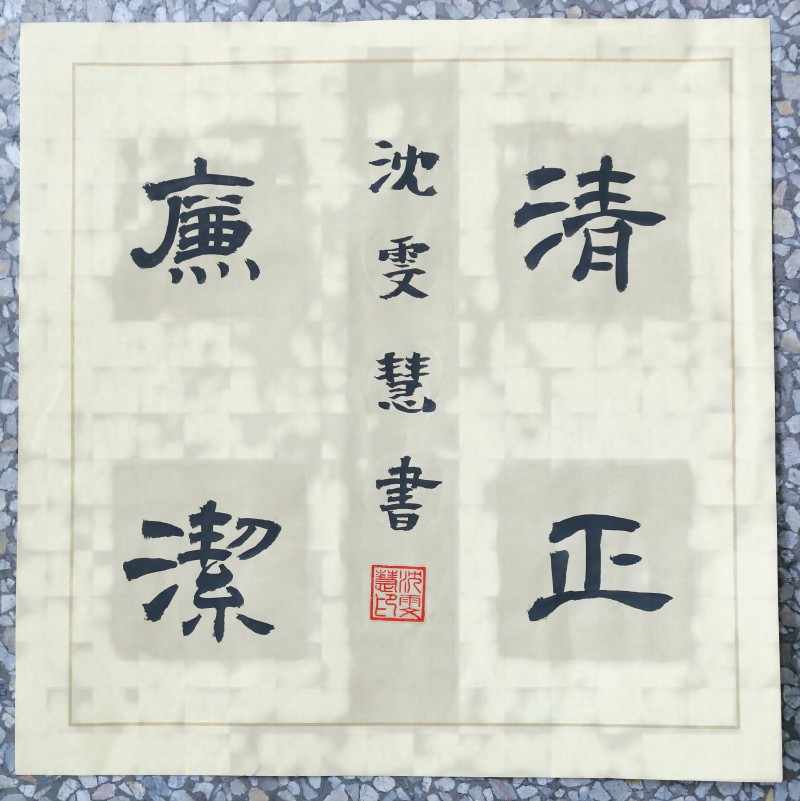 清正
廉潔
沈雯慧書
沈雯慧印